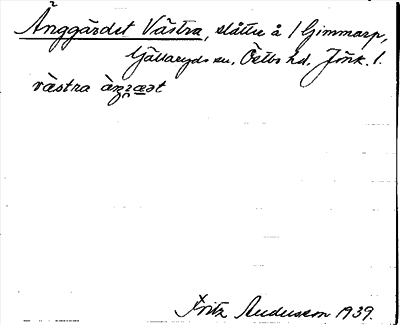 Änggärdet Västra, slåtter å 1 Gimmarp,
Gällaryds sn. Östbo hd. Jönk. l.
västra àŋʒæ̀ət
Fritz Andersson 1939.